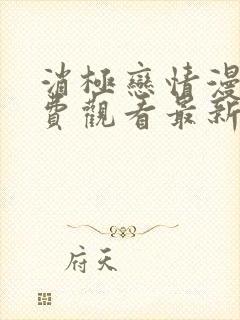 消極戀情漫
費觀看最新
府天